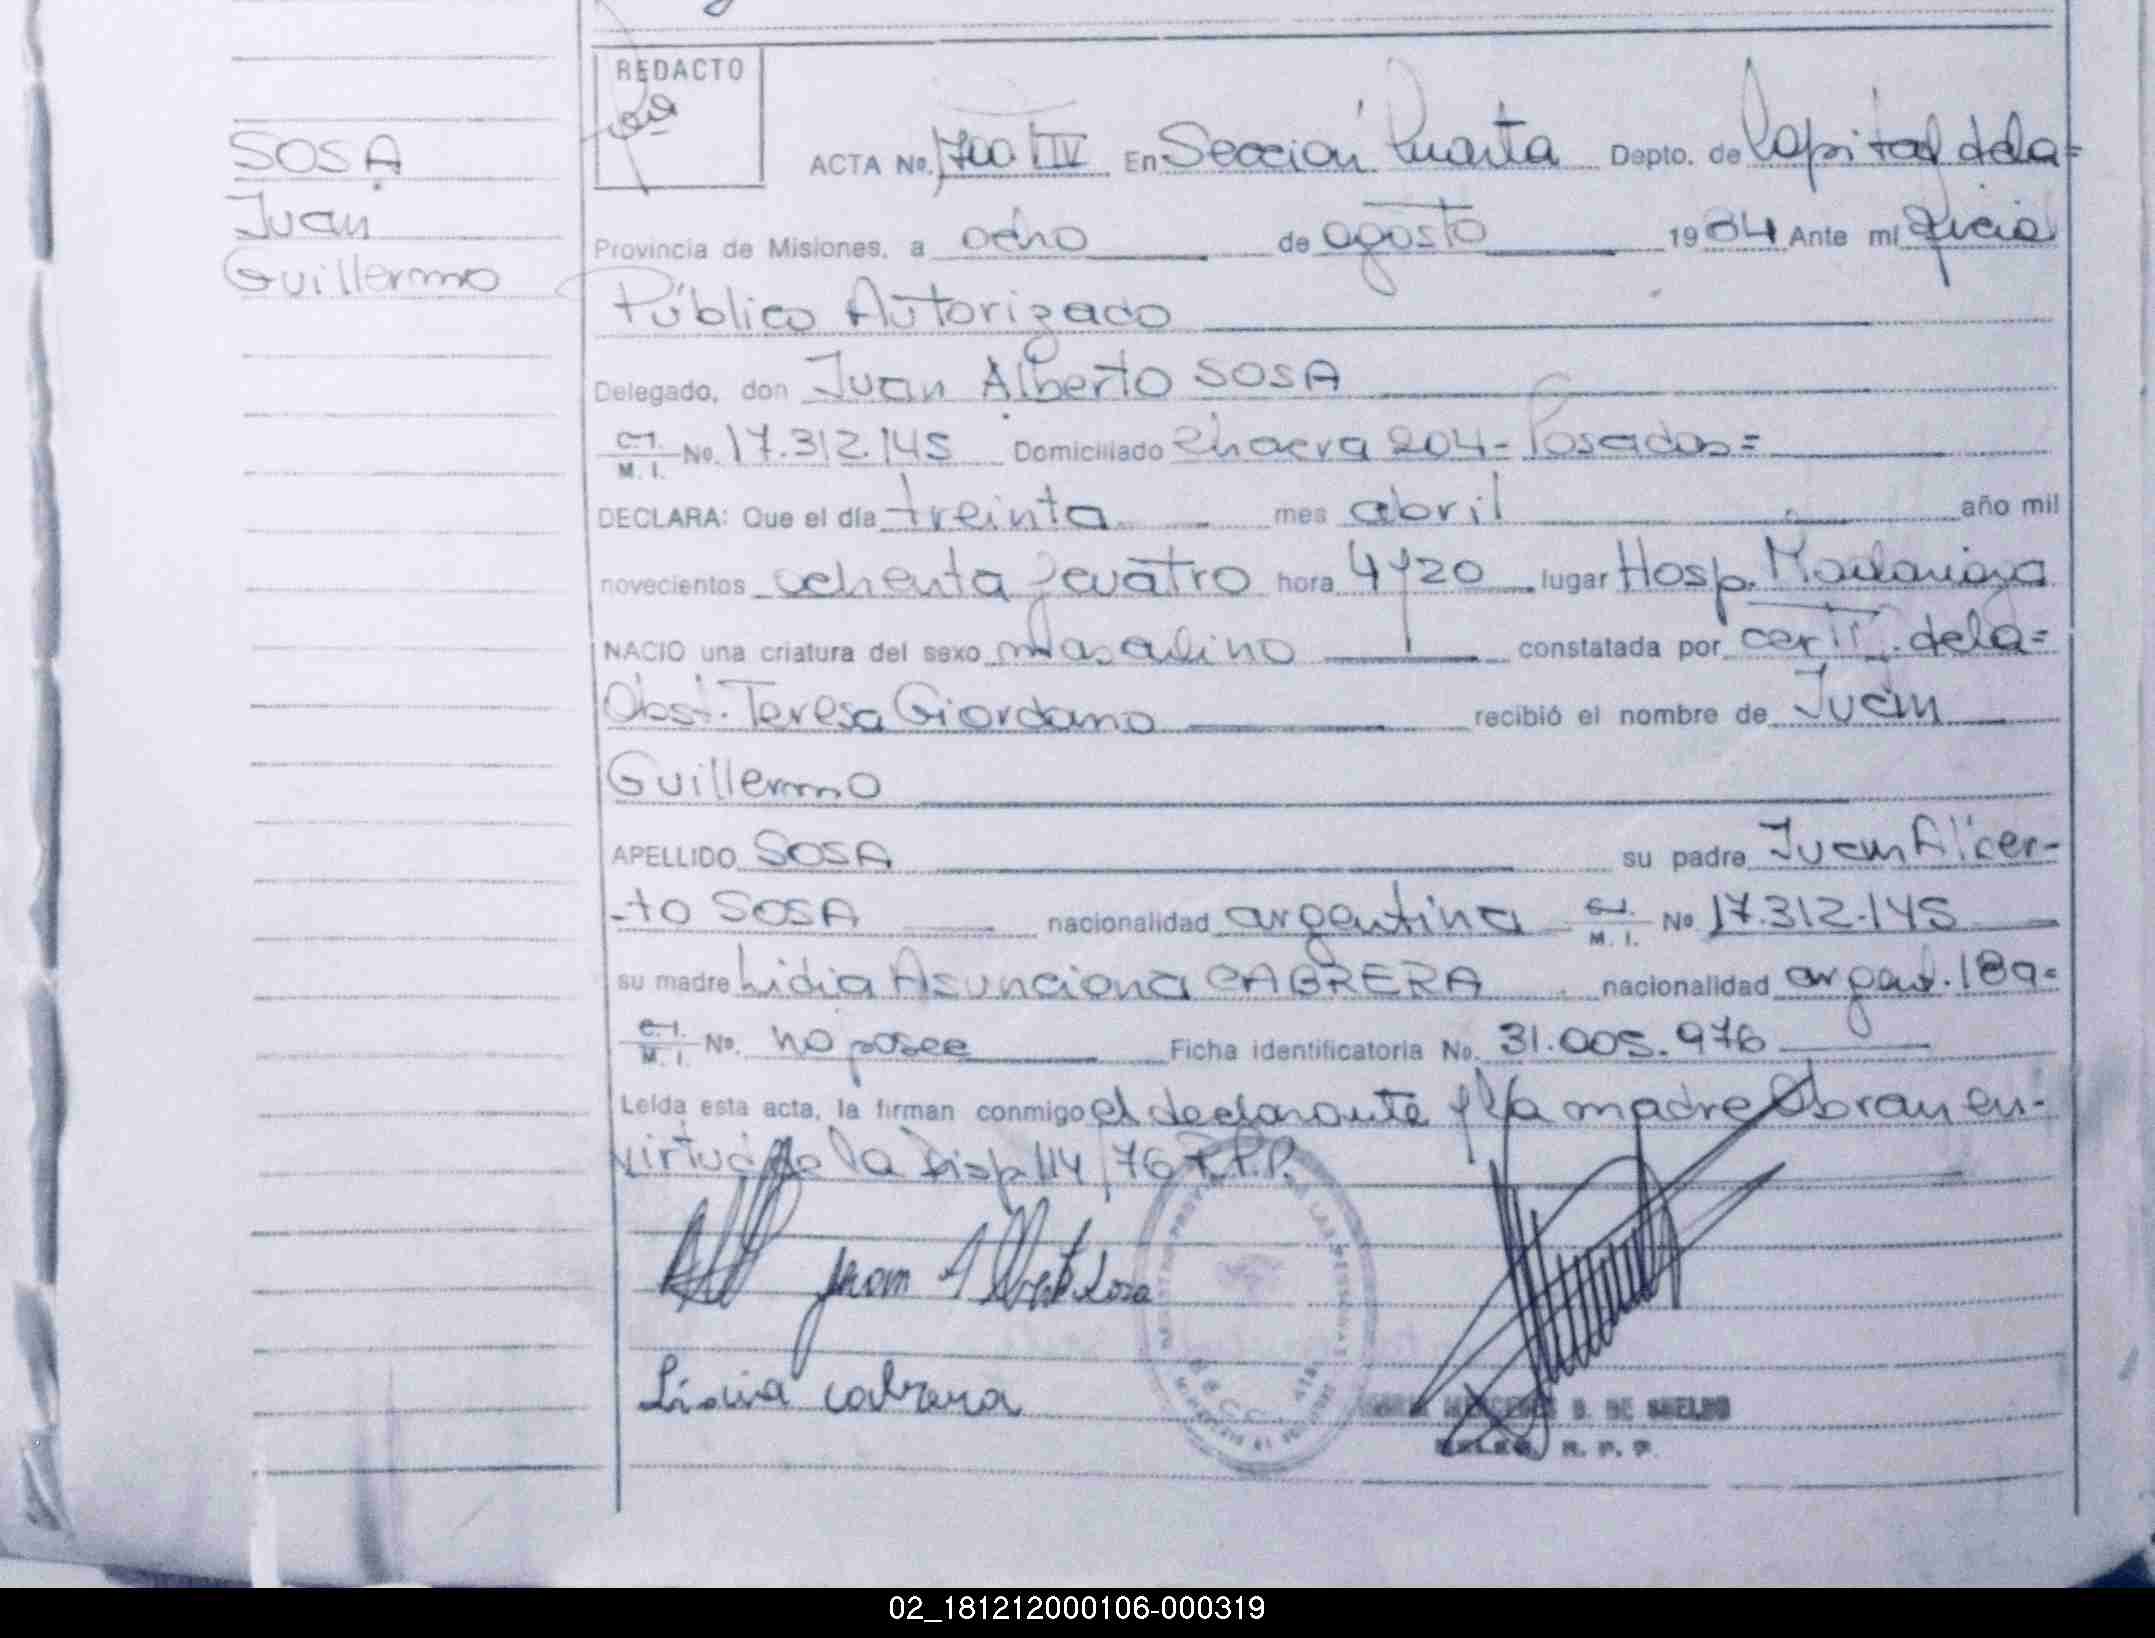 REDACTO
SOSA
Juan
Guillermo
ACTA No. 700 IV En Sección Cuarta Depto. de Capital de la=
Provincia de Misiones, a ocho de agosto 1984 Ante mi Oficial
Público Autorizado
Delegado, don Juan Alberto SOSA
C.I. M. I. No. 17.312.145 Domiciliado Chacra 204= Posadas=
DECLARA: Que el día treinta mes abril año mil
novecientos ochenta y cuatro hora 4y20 lugar Hosp. Madariaga
NACIO una criatura del sexo masculino constatada por certf. de la=
Obst. Teresa Giordano recibió el nombre de Juan
Guillermo
APELLIDO SOSA su padre Juan Alber-
-to SOSA nacionalidad argentina C.I. M. I. No 17.312.145
su madre Lidia Asunciona CABRERA nacionalidad argent. 18a=
C.I. M. I. No. no posee Ficha identificatoria No. 31.005.976
Leída esta acta, la firman conmigo el declarante y la madre Obran en-
virtud de la Disp 114/76 R.P.P.
Juan Alberto Sosa
Cabrera
MERCEDES B. DE
R. P. P.
02_181212000106-000319